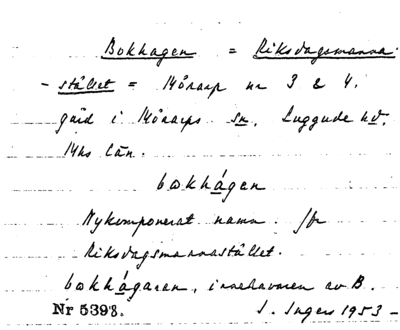 Bokhagen = Riksdagsmanna-
- stället = Mörarp nr 3 & 4.
gård i Mörarps sn, Luggude hd,
Mhs län.
bokhágen
Nykomponerat namn för
Riksdagsmannastället.
bokhágaren, innehavaren av B.
Nr 5393. I. Ingers 1953 -